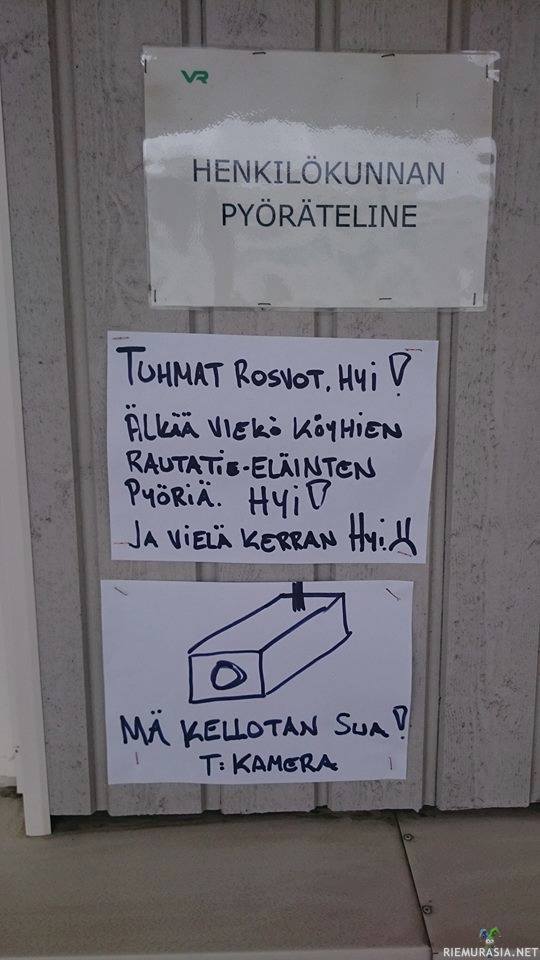 VR
HENKILÖKUNNAN
PYÖRÄTELINE
TUHMAT ROSVOT, HYi!
ÄLKÄÄ VIEKÖ KÖYHIEN
RAUTATIE-ELÄINTEN
PYÖRIÄ. HYi!
JA VIELÄ KERRAN HYi!!
MÄ KELLOTAN SUA!
T: KAMERA
RIEMURASIA.NET